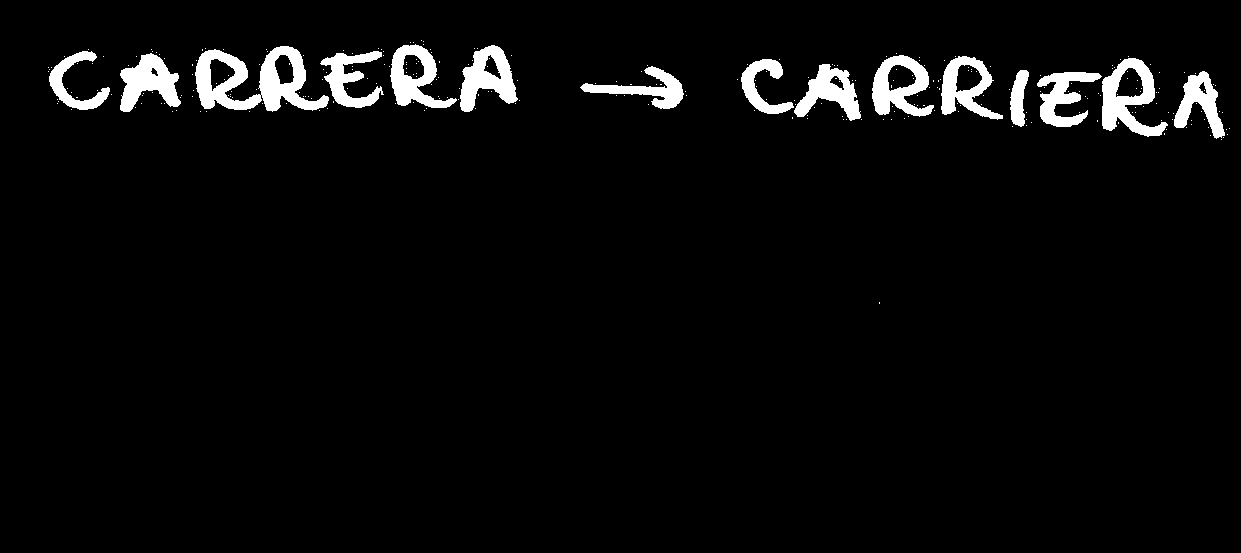 CARRERA → CARRIERA